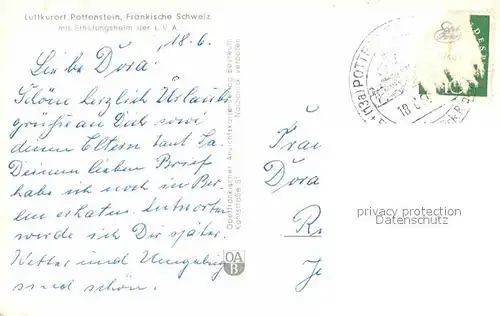 Luftkurort Pottenstein, Fränkische Schweiz
mit Erholungsheim der L.V.A.
18.6.
Liebe Dora!
Schöne herzlich Urlaubs
grüße an Dich sowi
deinen Eltern
Deinen lieben Brief
habe ich noch in Ber-
lin erhalten. Antworten
werde ich Dir später.
Wetter und Umgebung
sind schön.
Oberfränkischer Ansichtskartenverlag Bayreuth
Nachdruck verboten
OA
B
(13a) POTTE
18.6.
Frau
Dora
privacy protection
Datenschutz